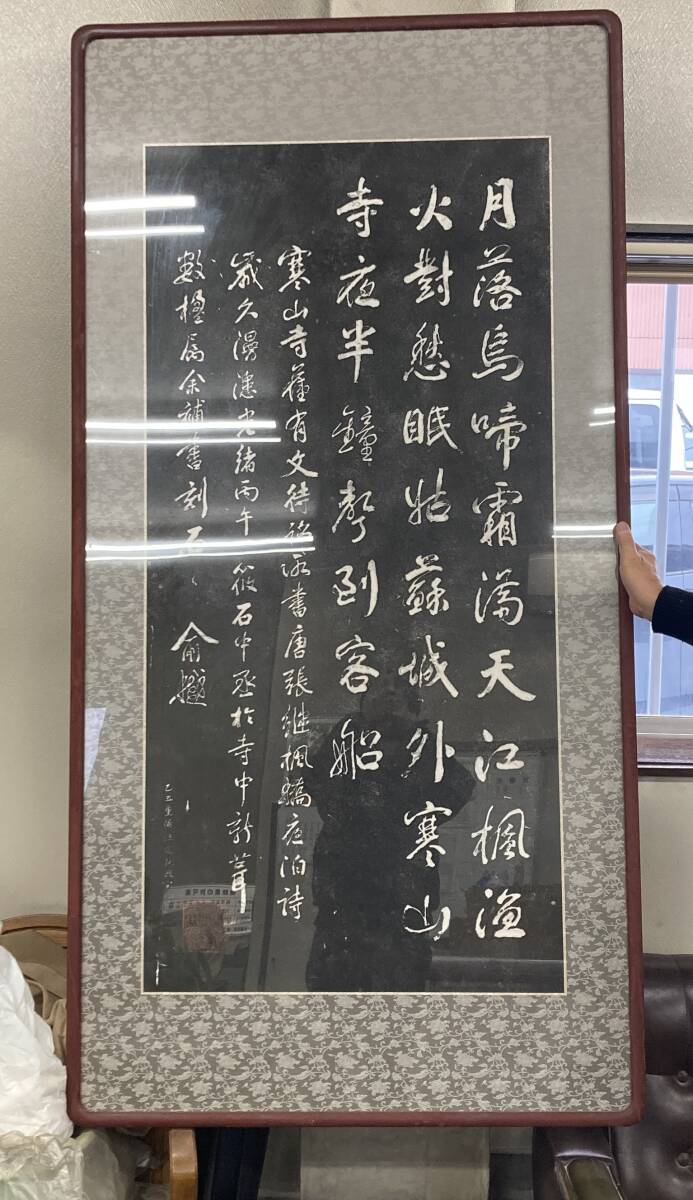 月落烏啼霜滿天江楓漁
火對愁眠姑蘇城外寒山
寺夜半鐘聲到客船
寒山寺舊有文待詔所書唐張繼楓橋夜泊詩
歲久漫漶光緒丙午筱石中丞於寺中新葺
數楹屬余補書刻石〻
俞樾